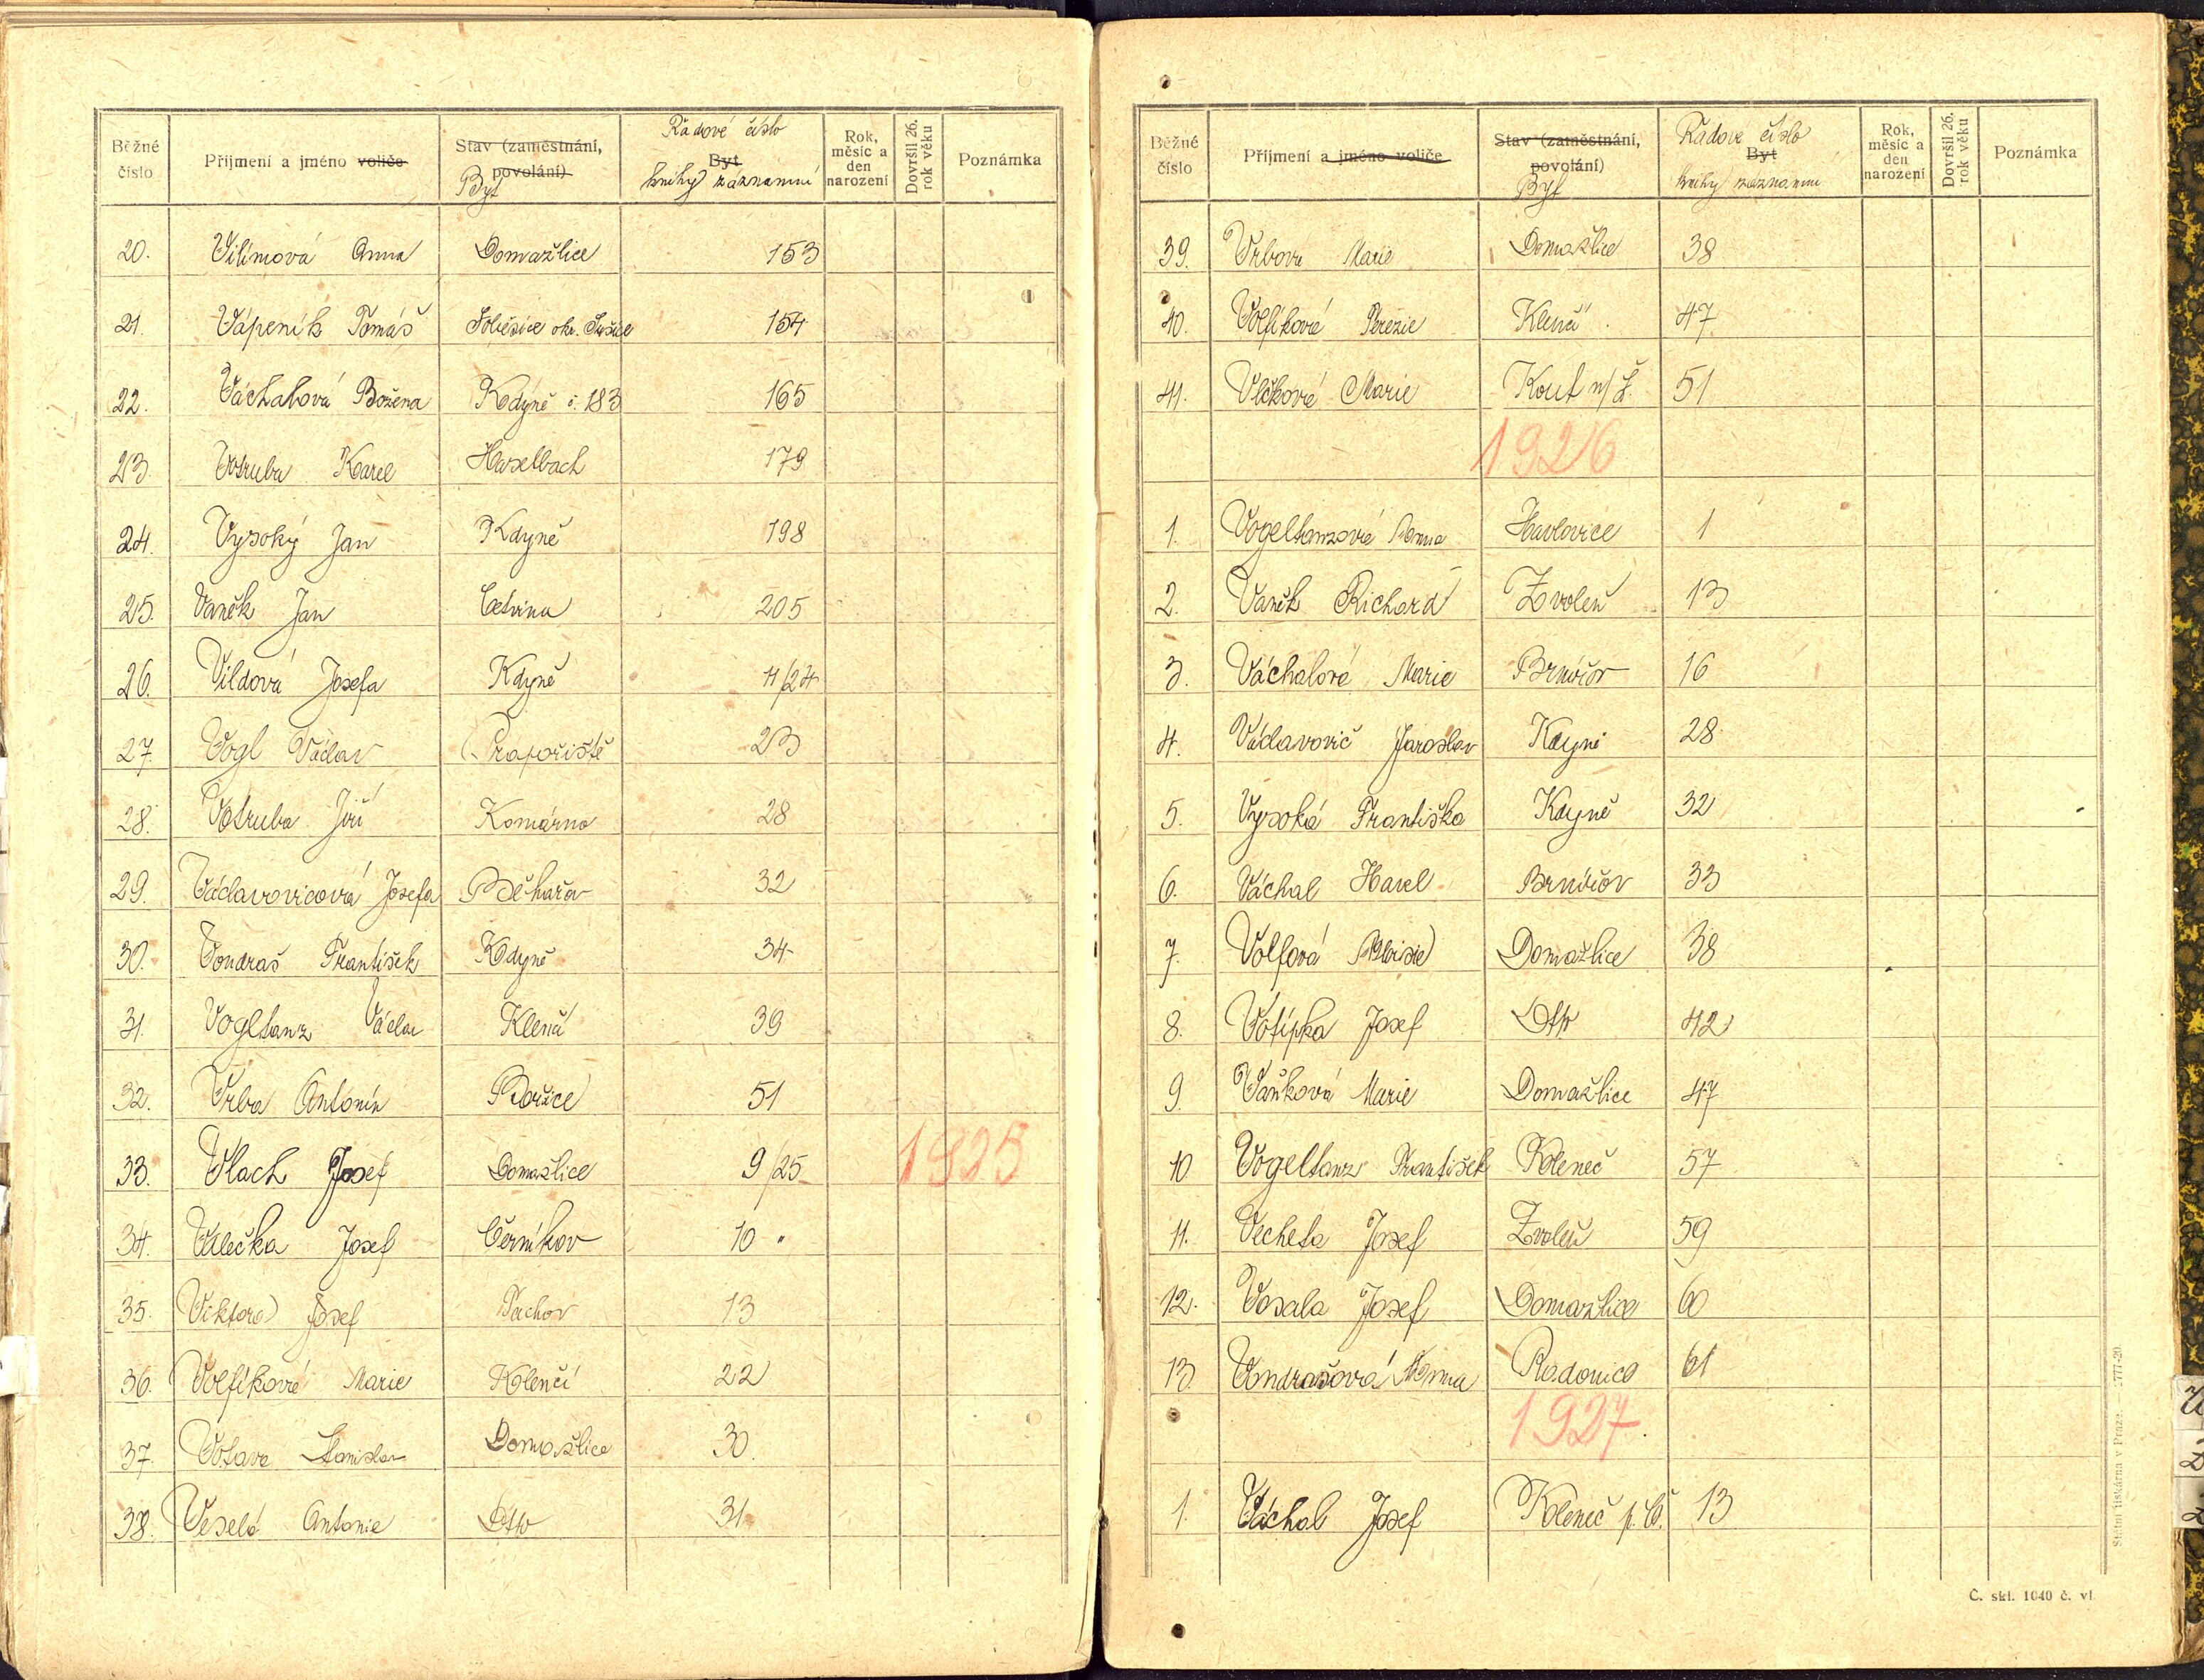 Běžné číslo Příjmení a jméno voliče Stav (zaměstnání, povolání) Byt Řadové číslo Byt knihy záznamní Rok, měsíc a den narození Dovršil 26. rok věku Poznámka
20. Vilímová Anna Domažlice 153
21. Vápeník Tomáš Soběšice okr. Sušice 154
22. Váchalová Božena Kdyně č. 183 165
23. Votruba Karel Haselbach 179
24. Vysoký Jan Kdyně 198
25. Vaněk Jan Cetvina 205
26. Vildová Josefa Kdyně 4/24
27. Vogl Václav Prapořiště 23
28. Votruba Jiří Komárno 28
29. Václavovicová Josefa Běhařov 32
30. Vondraš František Kdyně 34
31. Vogltanz Václav Klenčí 39
32. Vrba Antonín Pořice 51
33. Vlach Josef Domažlice 9/25 1925
34. Válečka Josef Černíkov 10 "
35. Viktora Josef Tachov 13
36. Volfíková Marie Klenčí 22
37. Votava Stanislav Domažlice 30
38. Veselá Antonie Dtto 31
Běžné číslo Příjmení a jméno voliče Stav (zaměstnání, povolání) Byt Řadové číslo Byt knihy záznamní Rok, měsíc a den narození Dovršil 26. rok věku Poznámka
39. Vrbova Marie Domažlice 38
40. Volfíková Terezie Klenčí 47
41. Vlčková Marie Kout n/Š. 51
1926
1. Vogeltanzová Anna Havlovice 1
2. Vaněk Richard Zvoleň 13
3. Váchalová Marie Brnířov 16
4. Václavovič Jaroslav Kdyně 28
5. Vysoká Františka Kdyně 32
6. Váchal Karel Brnířov 33
7. Volfová Domažlice 38
8. Votípka Josef Dtto 42
9. Vaňková Marie Domažlice 47
10. Vogeltanz František Kleneč 57
11. Vecheta Josef Zvoleň 59
12. Vosala Josef Domažlice 60
13. Vondrašová Anna Radonice 61
1927.
1. Váchal Josef Kleneč p. Č. 13
Státní tiskárna v Praze. — 2777-20
Č. skl. 1040 č. vl.